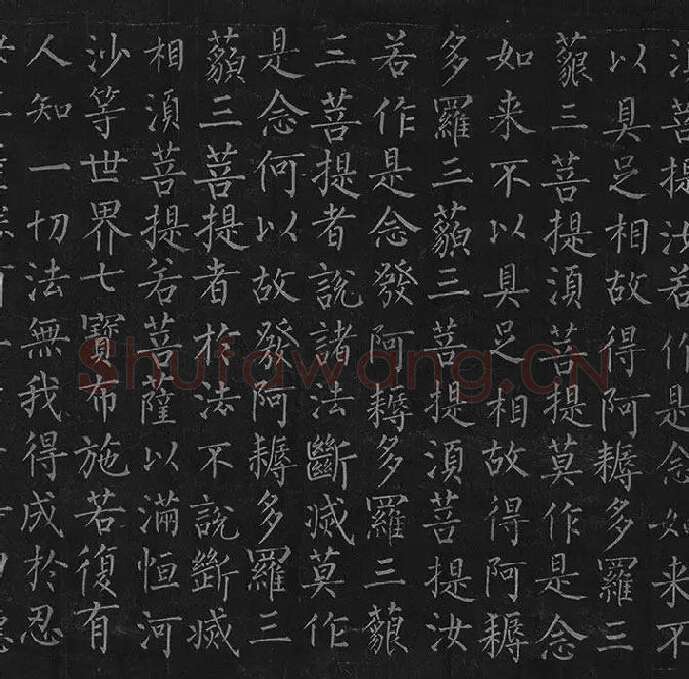 湏菩提汝若作是念如来不
以具足相故得阿耨多羅三
藐三菩提湏菩提莫作是念
如来不以具足相故得阿耨
多羅三藐三菩提湏菩提汝
若作是念發阿耨多羅三藐
三菩提者說諸法斷滅莫作
是念何以故發阿耨多羅三
藐三菩提者於法不說斷滅
相湏菩提若菩薩以滿恒河
沙等世界七寶布施若復有
人知一切法無我得成於忍
Shufawang.CN